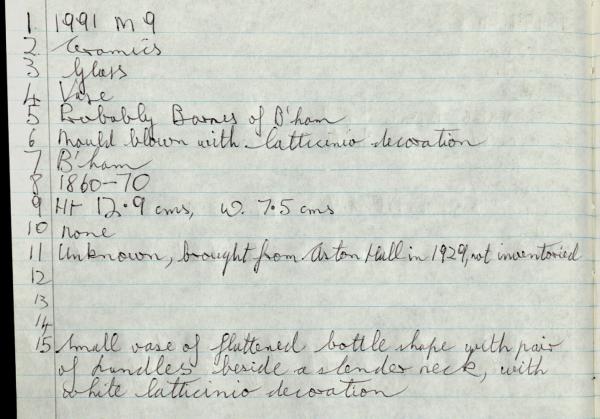 1. 1991 M 9
2. Ceramics
3 Glass
4 Vase
5 Probably Barnes of B'ham
6 Mould blown with latticinio decoration
7 B'ham
8 1860-70
9 Ht 12.9 cms, W. 7.5 cms
10 None
11 Unknown, brought from Aston Hall in 1929, not inventoried
12
13
14
15 Small vase of flattened bottle shape with pair
of handles beside a slender neck, with
white latticinio decoration